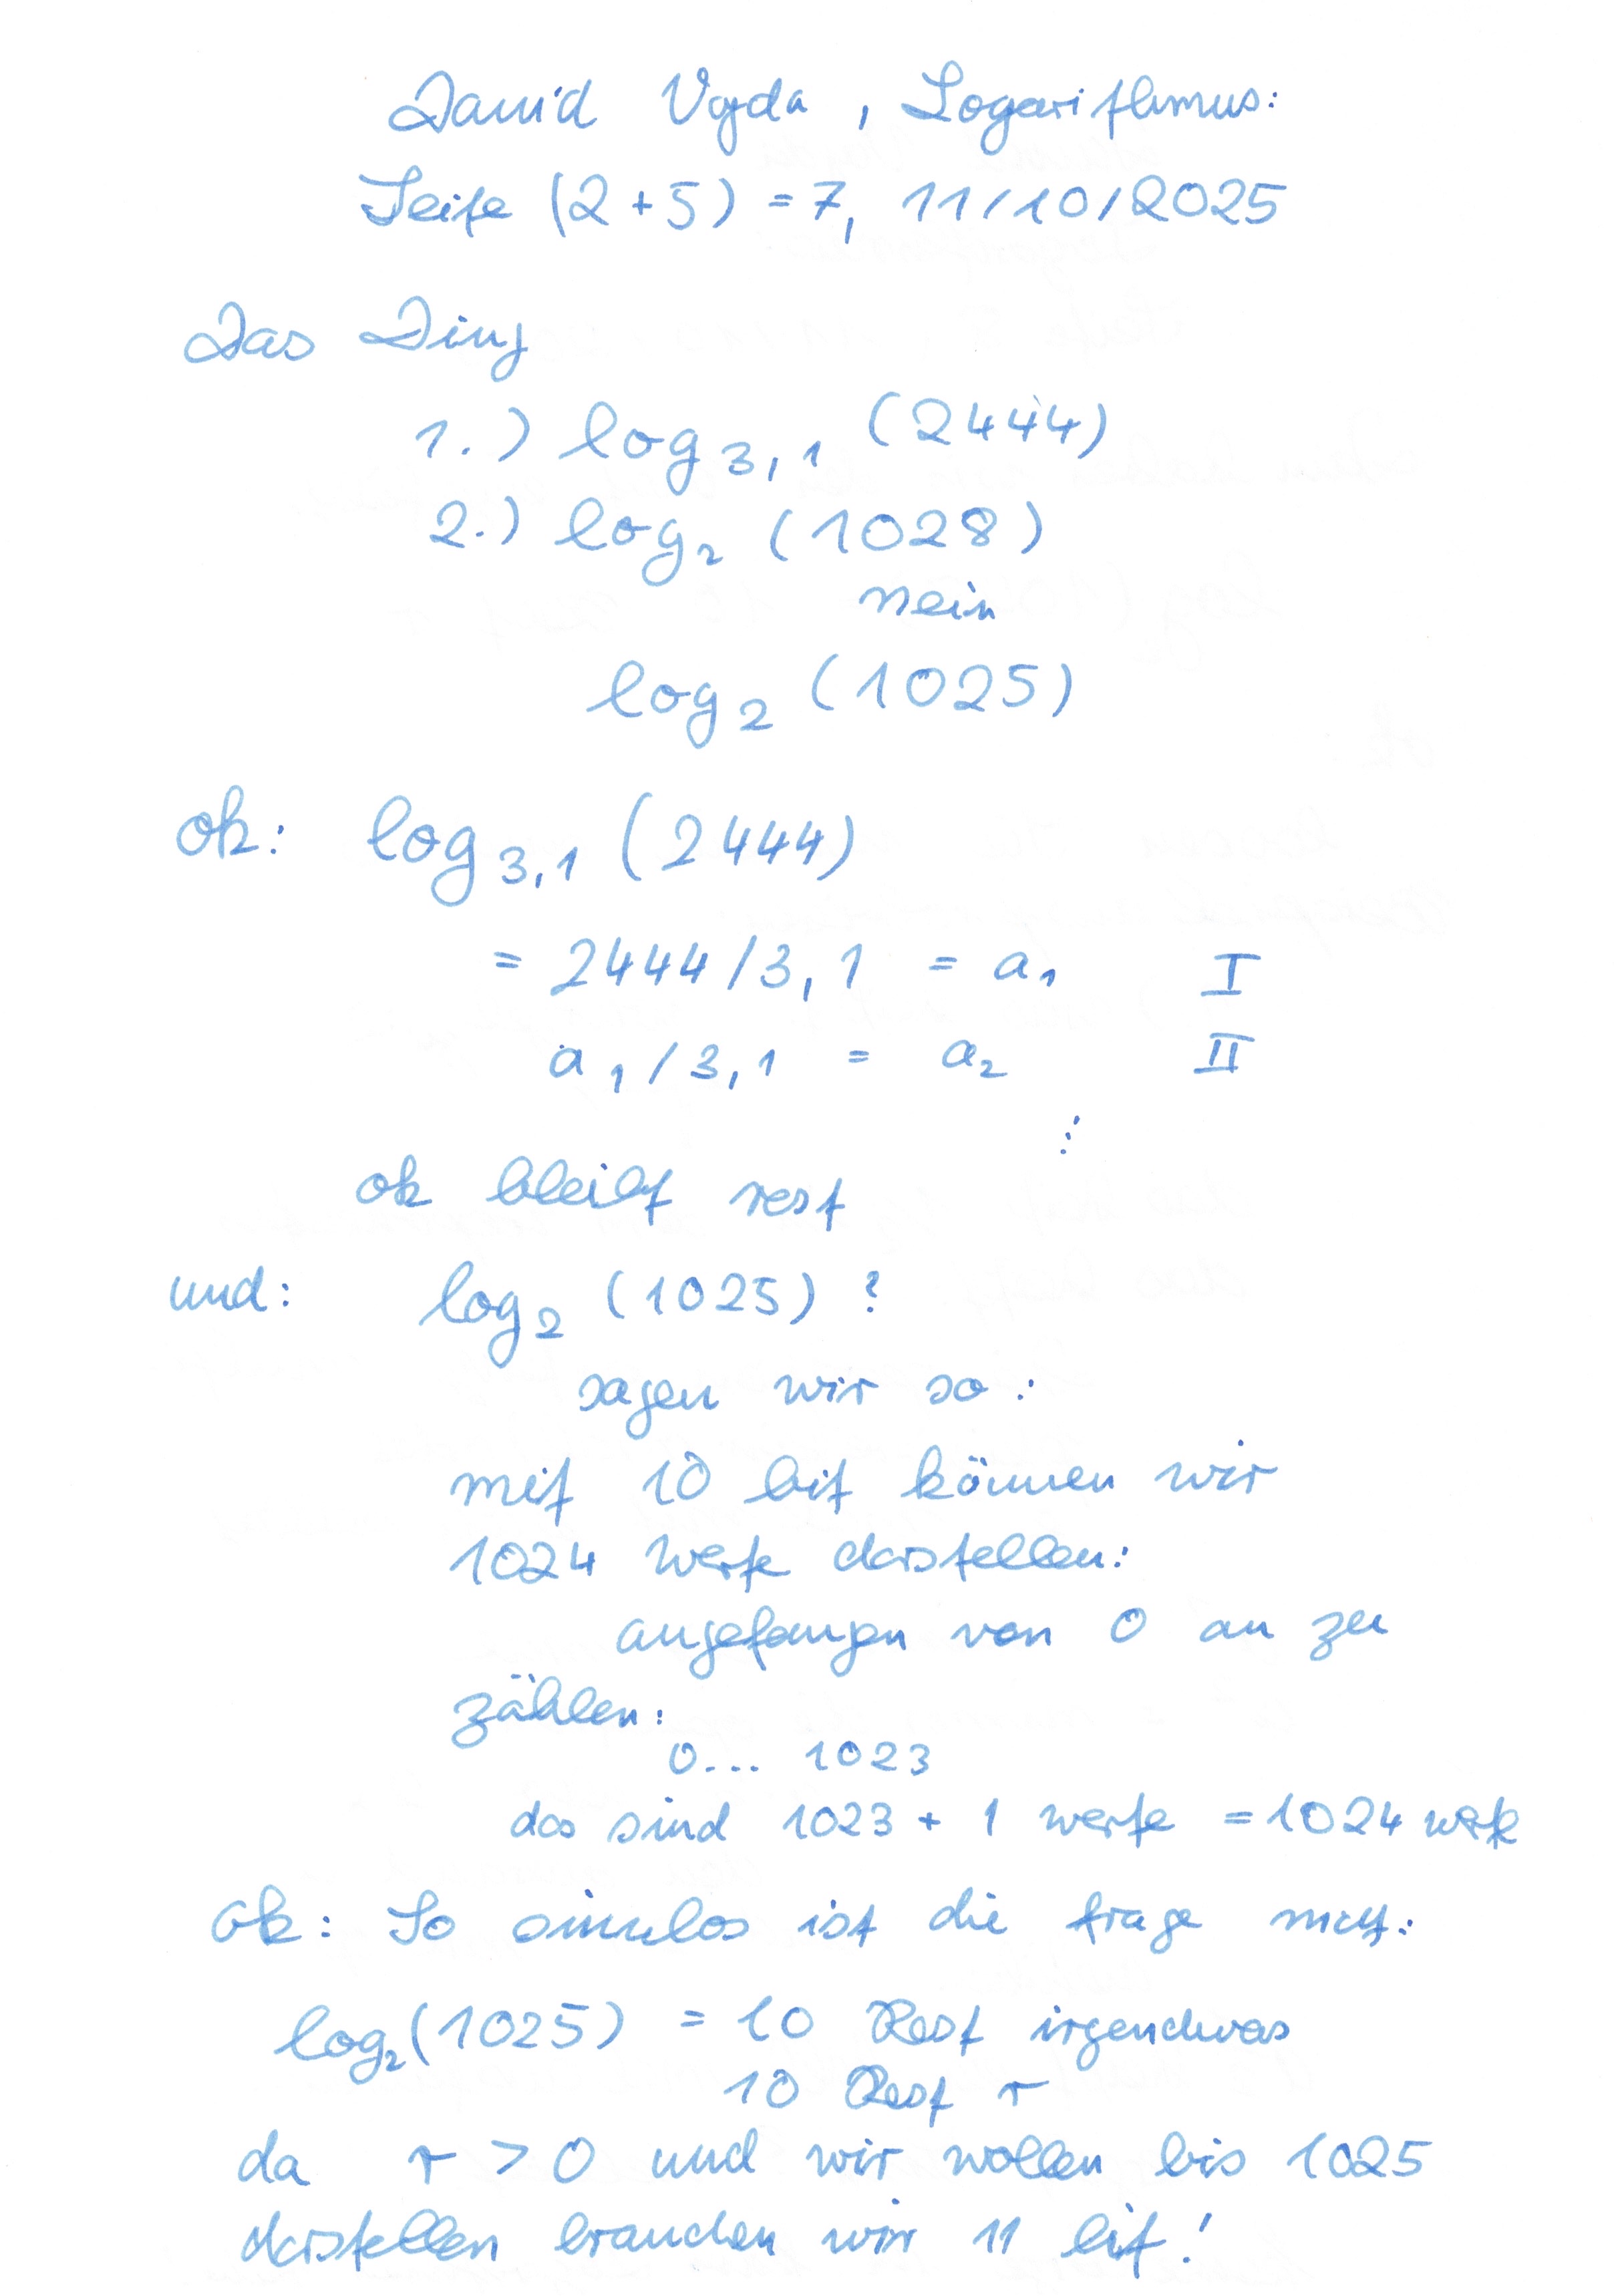 David Vajda, Logarithmus:
Seite (2+5) = 7, 11/10/2025
Das Ding
1.) log 3,1 (2444)
2.) log 2 (1028)
nein
log 2 (1025)
ok: log 3,1 (2444)
= 2444/3,1 = a1 I
a1/3,1 = a2 II
⋮
ok bleibt rest
und: log 2 (1025) ?
sagen wir so:
mit 10 bit können wir
1024 Werte darstellen:
angefangen von 0 an zu
zählen:
0... 1023
das sind 1023 + 1 werte = 1024 werte
ok: So sinnlos ist die frage nicht:
log2(1025) = 10 Rest irgendwas
10 Rest r
da r > 0 und wir wollen bis 1025
darstellen brauchen wir 11 bit!